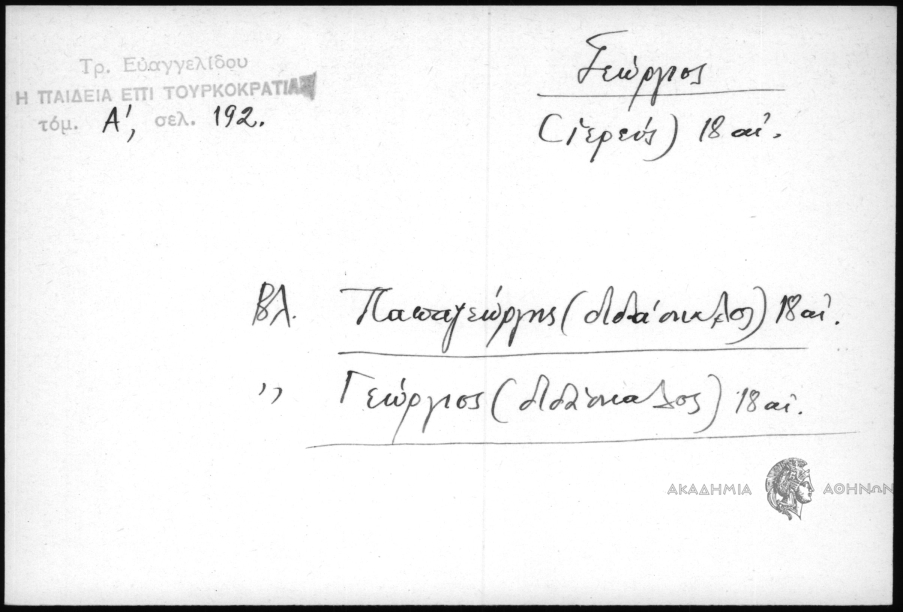 Τρ. Εὐαγγελίδου
Η ΠΑΙΔΕΙΑ ΕΠΙ ΤΟΥΡΚΟΚΡΑΤΙΑΣ
τόμ. Α', σελ. 192.
Γεώργιος
(ἱερεύς) 18 αἰ.
Βλ. Παπαγεώργης (διδάσκαλος) 18 αἰ.
,, Γεώργιος (διδάσκαλος) 18 αἰ.
ΑΚΑΔΗΜΙΑ ΑΘΗΝΩΝ